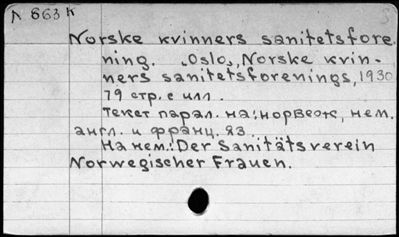 л 663 к
Norske kvinners sanitetsfore
ning. „Oslo„, Norske kvin-
ners sanitetsforenings, 1930
79 стр. с илл.
текст парал. на: норвежк, нем.
англ. и франц. яз.
На нем.: Der Sanitätsverein
Norwegischer Frauen.